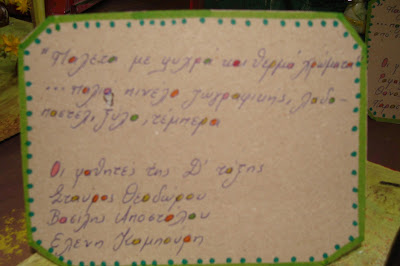 "Παλέτα με ψυχρά και θερμά χρώματα"
... παλιά πινέλα ζωγραφικής, λαδο-
παστέλ, ξύλο, τέμπερα
Οι μαθητές της Δ' τάξης
Σταύρος Θεοδώρου
Βασίλης Αποστόλου
Ελένη Καμπούρη